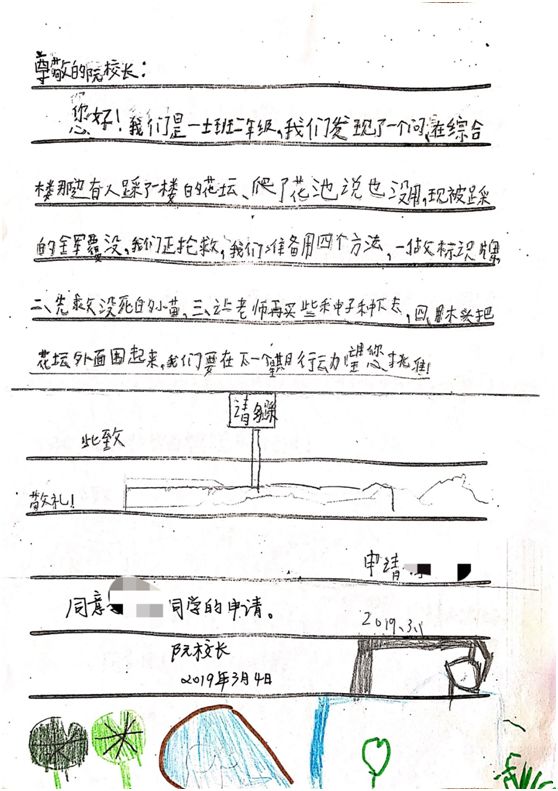 尊敬的阮校长：
您好！我们是一七班二年级，我们发现了一个问，在综合
楼那边有人踩了一楼的花坛、爬了花池说也没用，现被踩
的全军覆没，我们正抢救，我们准备用四个方法，一放标识牌
二、先救没死的小苗，三、让老师再买些种子种下去，四、用木头把
花坛外面围起来，我们要在下一个星期日行动望您批准！
请勿踩
此致
敬礼！
申请
2019.3.1
同意 同学的申请。
阮校长
2019年3月4日